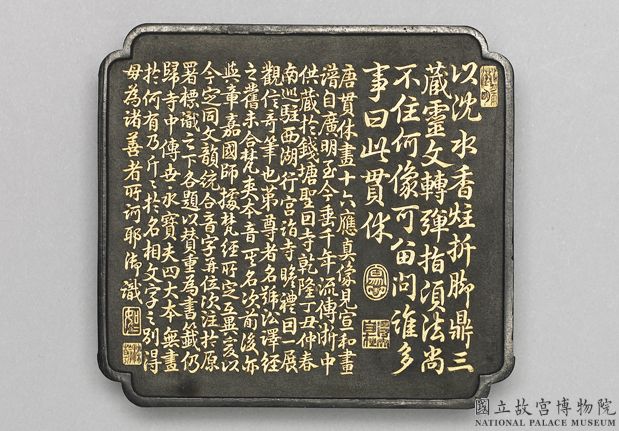 以沈水香炷折脚鼎三
藏靈文轉彈指頃法尚
不住何像可畱問誰多
事曰此貫休
唐貫休畫十六應真像見宣和畫
譜自廣明至今垂千年流傳浙中
供藏於錢塘聖因寺乾隆丁丑仲春
南巡駐西湖行宮詣寺瞻禮因一展
觀信奇筆也第尊者名號沿譯經
之舊未合梵夾本音其名次前後亦
與章嘉國師據梵經所定互異爰以
今定同文韻統合音字并位次注於原
署標識之下各題以贊重為書籤仍
歸寺中傳世永寶夫四大本無畫
於何有乃斤斤於名相文字之別得
毋為諸善者所訶耶御識
國立故宮博物院
NATIONAL PALACE MUSEUM